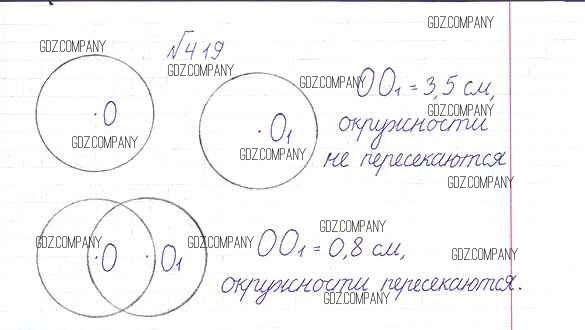 GDZ.COMPANY
GDZ.COMPANY
№419
GDZ.COMPANY
GDZ.COMPANY
OO₁ = 3,5 см,
GDZ.COMPANY
O
O₁
окружности
GDZ.COMPANY
GDZ.COMPANY
не пересекаются
GDZ.COMPANY
GDZ.COMPANY
GDZ.COMPANY
GDZ.COMPANY
O
O₁
OO₁ = 0,8 см,
GDZ.COMPANY
окружности пересекаются.
GDZ.COMPANY